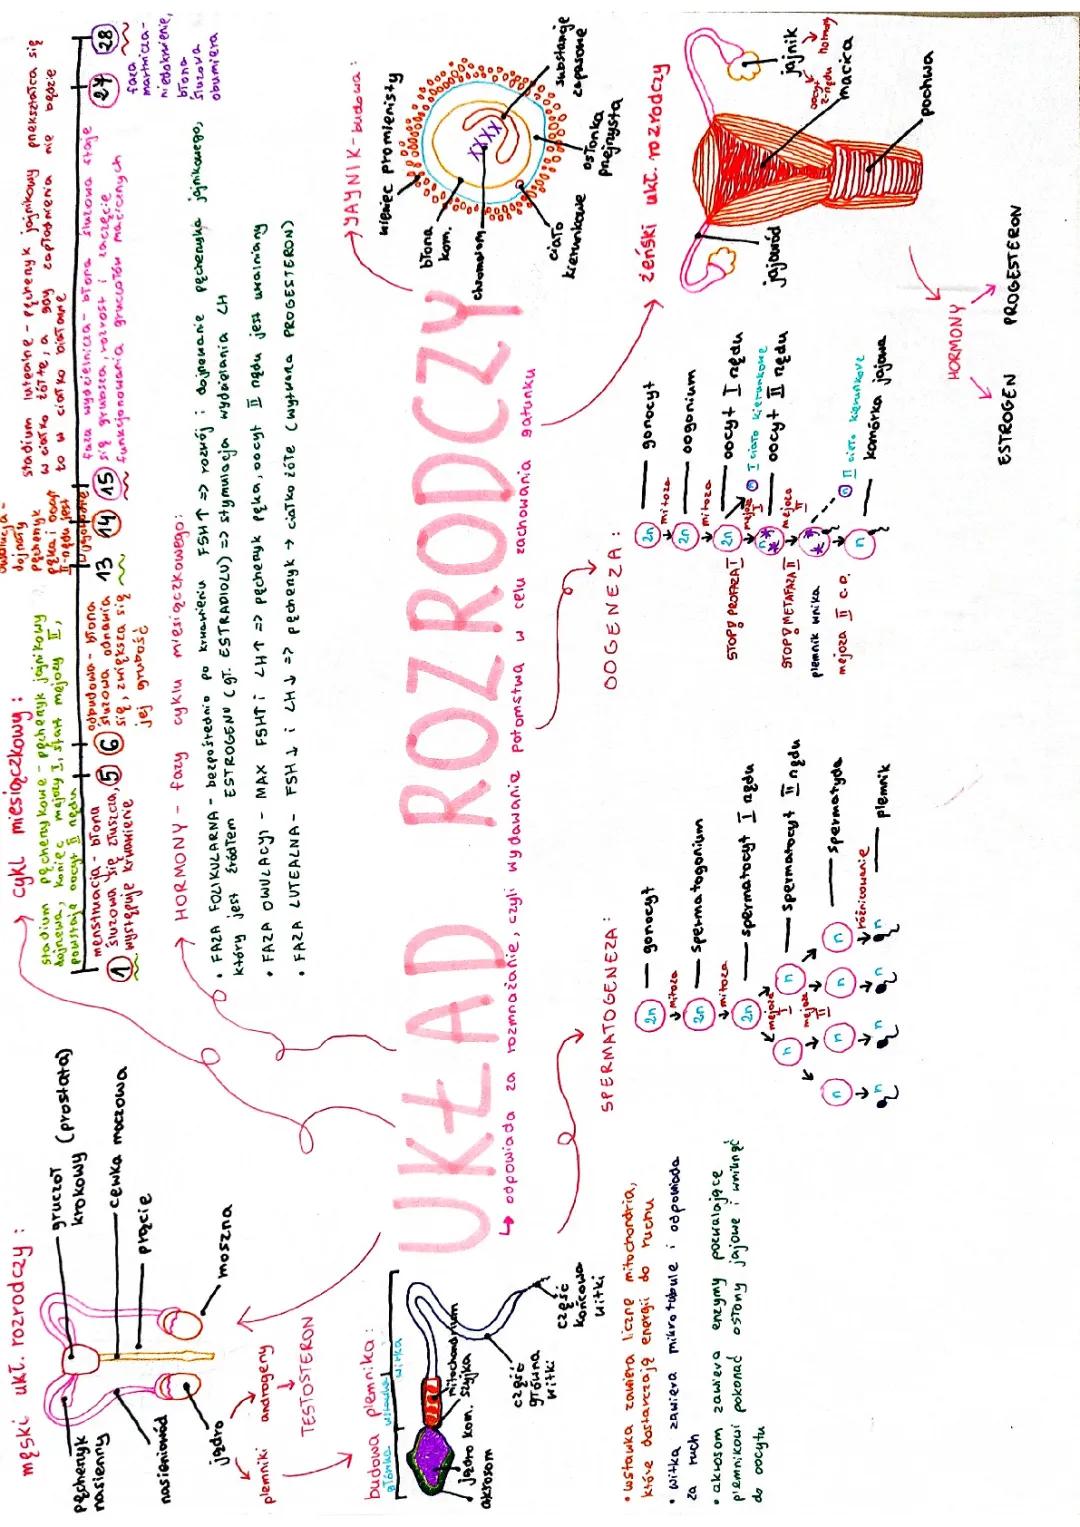 UKŁAD ROZRODCZY
↳ odpowiada za rozmnażanie, czyli wydawanie potomstwa w celu zachowania gatunku
męski ukł. rozrodczy:
pęcherzyk
nasienny
nasieniowód
jądro
gruczoł
krokowy (prostata)
cewka moczowa
prącie
moszna
plemniki
androgeny
↓
TESTOSTERON
budowa plemnika:
główka wstawka witka
akrosom
jądro kom.
szyjka
mitochondrium
część
główna
witki
część
końcowa
witki
• wstawka zawiera liczne mitochondria,
które dostarczają energii do ruchu
• witka zawiera mikrotubule i odpowiada
za ruch
• akrosom zawiera enzymy pozwalające
plemnikowi pokonać osłony jajowe i wniknąć
do oocytu
cykl miesiączkowy:
stadium pęcherzykowe - pęcherzyk jajnikowy
dojrzewa, koniec mejozy I, start mejozy II,
powstaje oocyt II rzędu
dojrzały
pęcherzyk
pęka i oocyt
II-rzędu jest
stadium lutealne - pęcherzyk jajnikowy przekształca się
w ciałko żółte, a gdy zapłodnienia nie będzie
to w ciałko białawe
1 5 6 13 14 15 27 28
menstruacja - błona
śluzowa się złuszcza,
występuje krwawienie
odbudowa - błona
śluzowa odnawia
się, zwiększa się
jej grubość
faza wydzielnicza - błona śluzowa staje
się grubsza, rozrost i zaczęcie
funkcjonowania gruczołów macicznych
faza
martwicza -
niedokrwienie,
błona
śluzowa
obumiera
HORMONY - fazy cyklu miesiączkowego:
• FAZA FOLIKULARNA - bezpośrednio po krwawieniu FSH↑ => rozwój i dojrzewanie pęcherzyka jajnikowego,
który jest źródłem ESTROGENU (gł. ESTRADIOLU) => stymulacja wydzielania LH
• FAZA OWULACYJ - MAX FSH↑ i LH↑ => pęcherzyk pęka, oocyt II rzędu jest uwalniany
• FAZA LUTEALNA - FSH↓ i LH↓ => pęcherzyk → ciałko żółte (wytwarza PROGESTERON)
JAYNIK - budowa:
wieniec promienisty
błona
kom.
chromosomy
ciało
kierunkowe
substancje
zapasowe
osłonka
przejrzysta
żeński ukł. rozrodczy
jajowód
jajnik
oocyt
II-rzędu
hormony
macica
pochwa
HORMONY
ESTROGEN PROGESTERON
SPERMATOGENEZA:
2n — gonocyt
mitoza
2n — spermatogonium
mitoza
2n — spermatocyt I rzędu
mejoza
I
n n — spermatocyt II rzędu
mejoza
II
n n n n — spermatyda
różnicowanie
n n n n — plemnik
OOGENEZA:
2n — gonocyt
mitoza
2n — oogonium
mitoza
STOP! PROFAZA I 2n — oocyt I rzędu
mejoza I
I ciało kierunkowe
n — oocyt II rzędu
STOP! METAFAZA II
mejoza II
plemnik wnika
mejoza II c.d.
II ciało kierunkowe
n — komórka jajowa